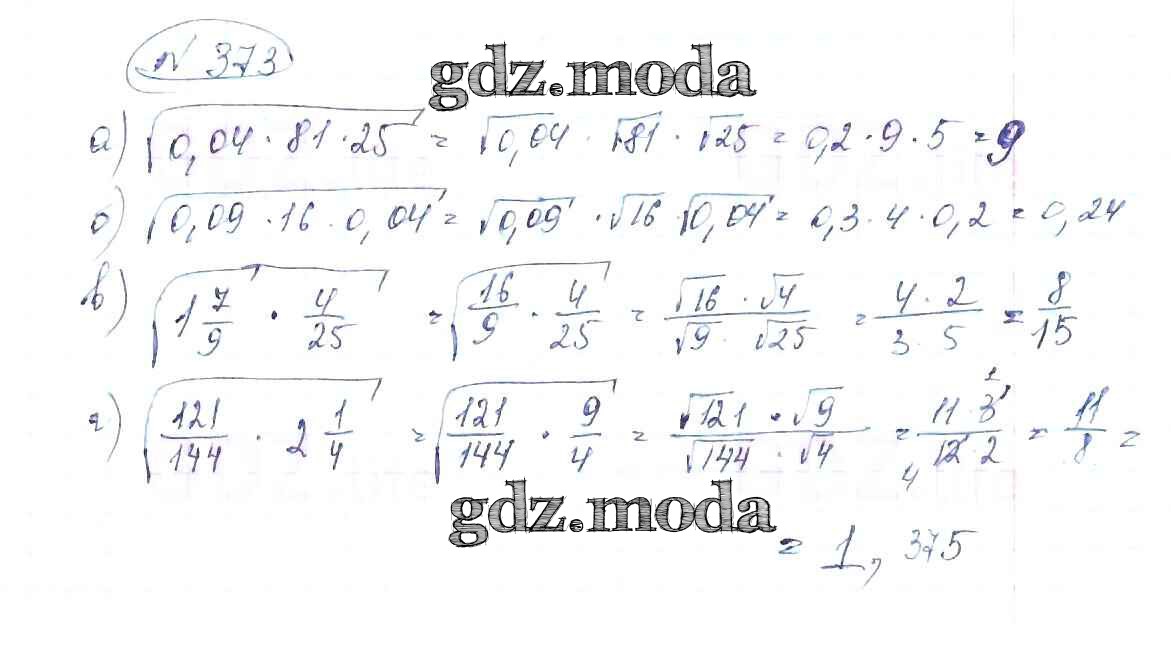 № 373
gdz.moda
а) √(0,04 · 81 · 25) = √0,04 · √81 · √25 = 0,2 · 9 · 5 = 9
б) √(0,09 · 16 · 0,04) = √0,09 · √16 · √0,04 = 0,3 · 4 · 0,2 = 0,24
в) √(1 7/9 · 4/25) = √(16/9 · 4/25) = (√16 · √4)/(√9 · √25) = (4 · 2)/(3 · 5) = 8/15
г) √(121/144 · 2 1/4) = √(121/144 · 9/4) = (√121 · √9)/(√144 · √4) = (11 · 3 1)/(4 12 · 2) = 11/8 =
gdz.moda
= 1,375